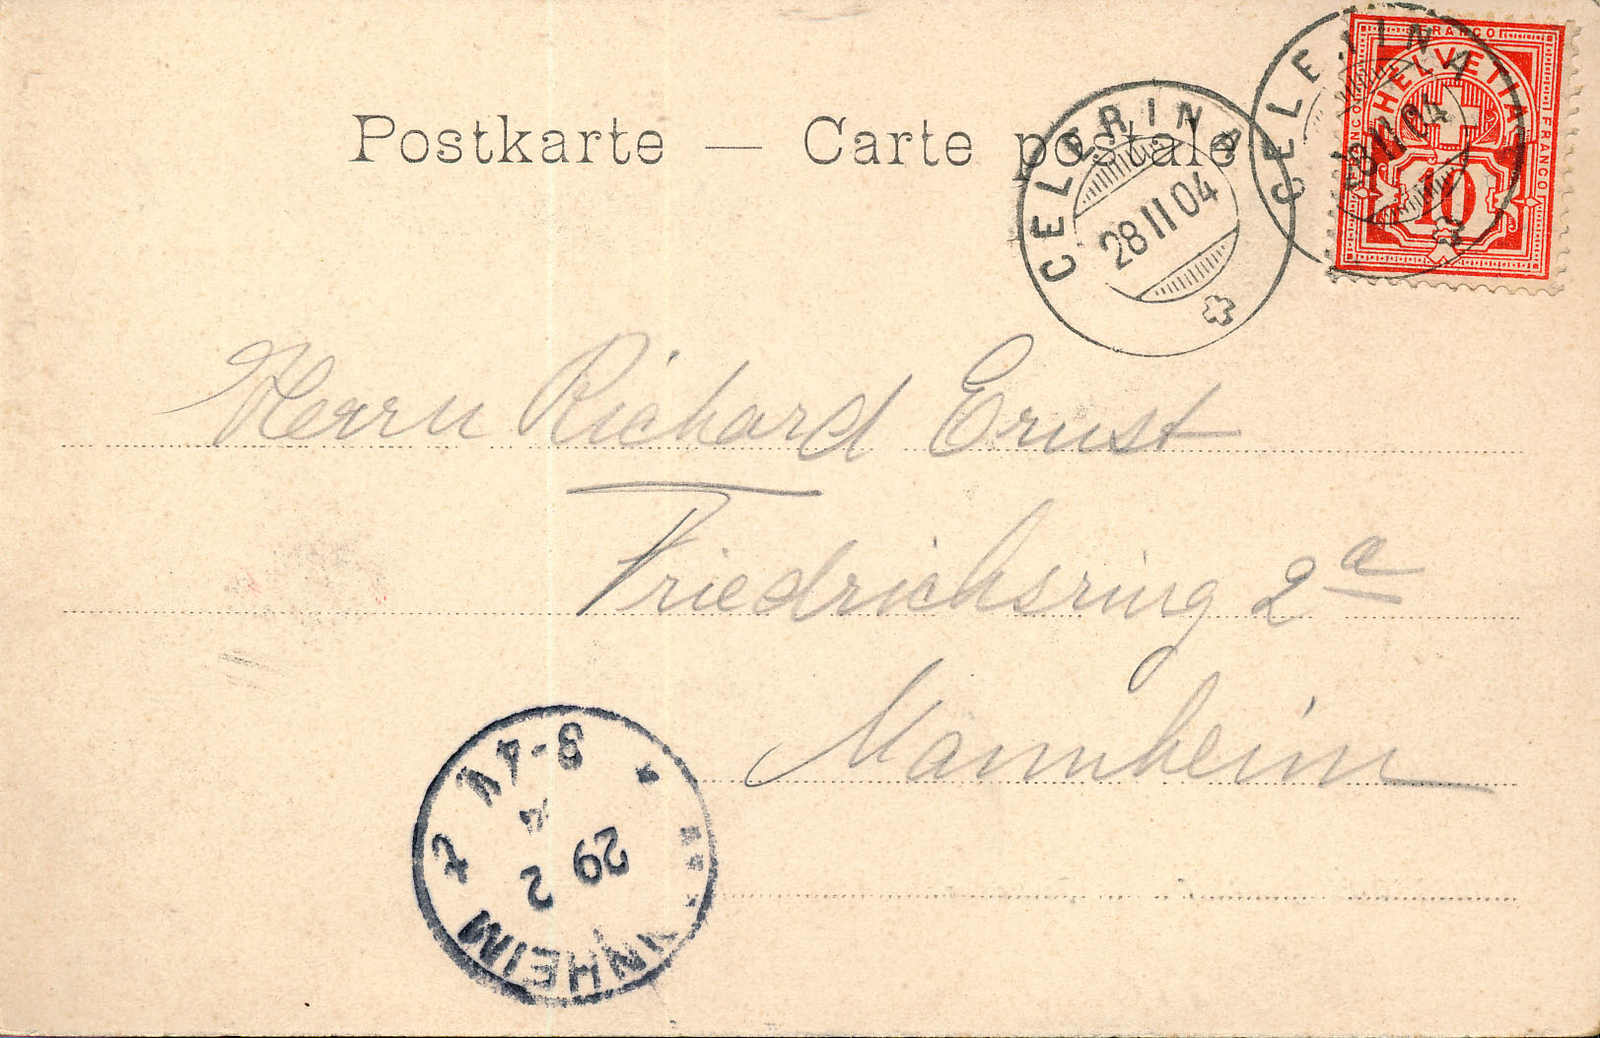 Postkarte — Carte postale
CELERINA
28 II 04
CELERINA
28 II 04
FRANCO
FRANCO
HELVETIA
10
Herrn Richard Ernst
Friedrichsring 2a
Mannheim
MANNHEIM 2
29 2
3-4 N